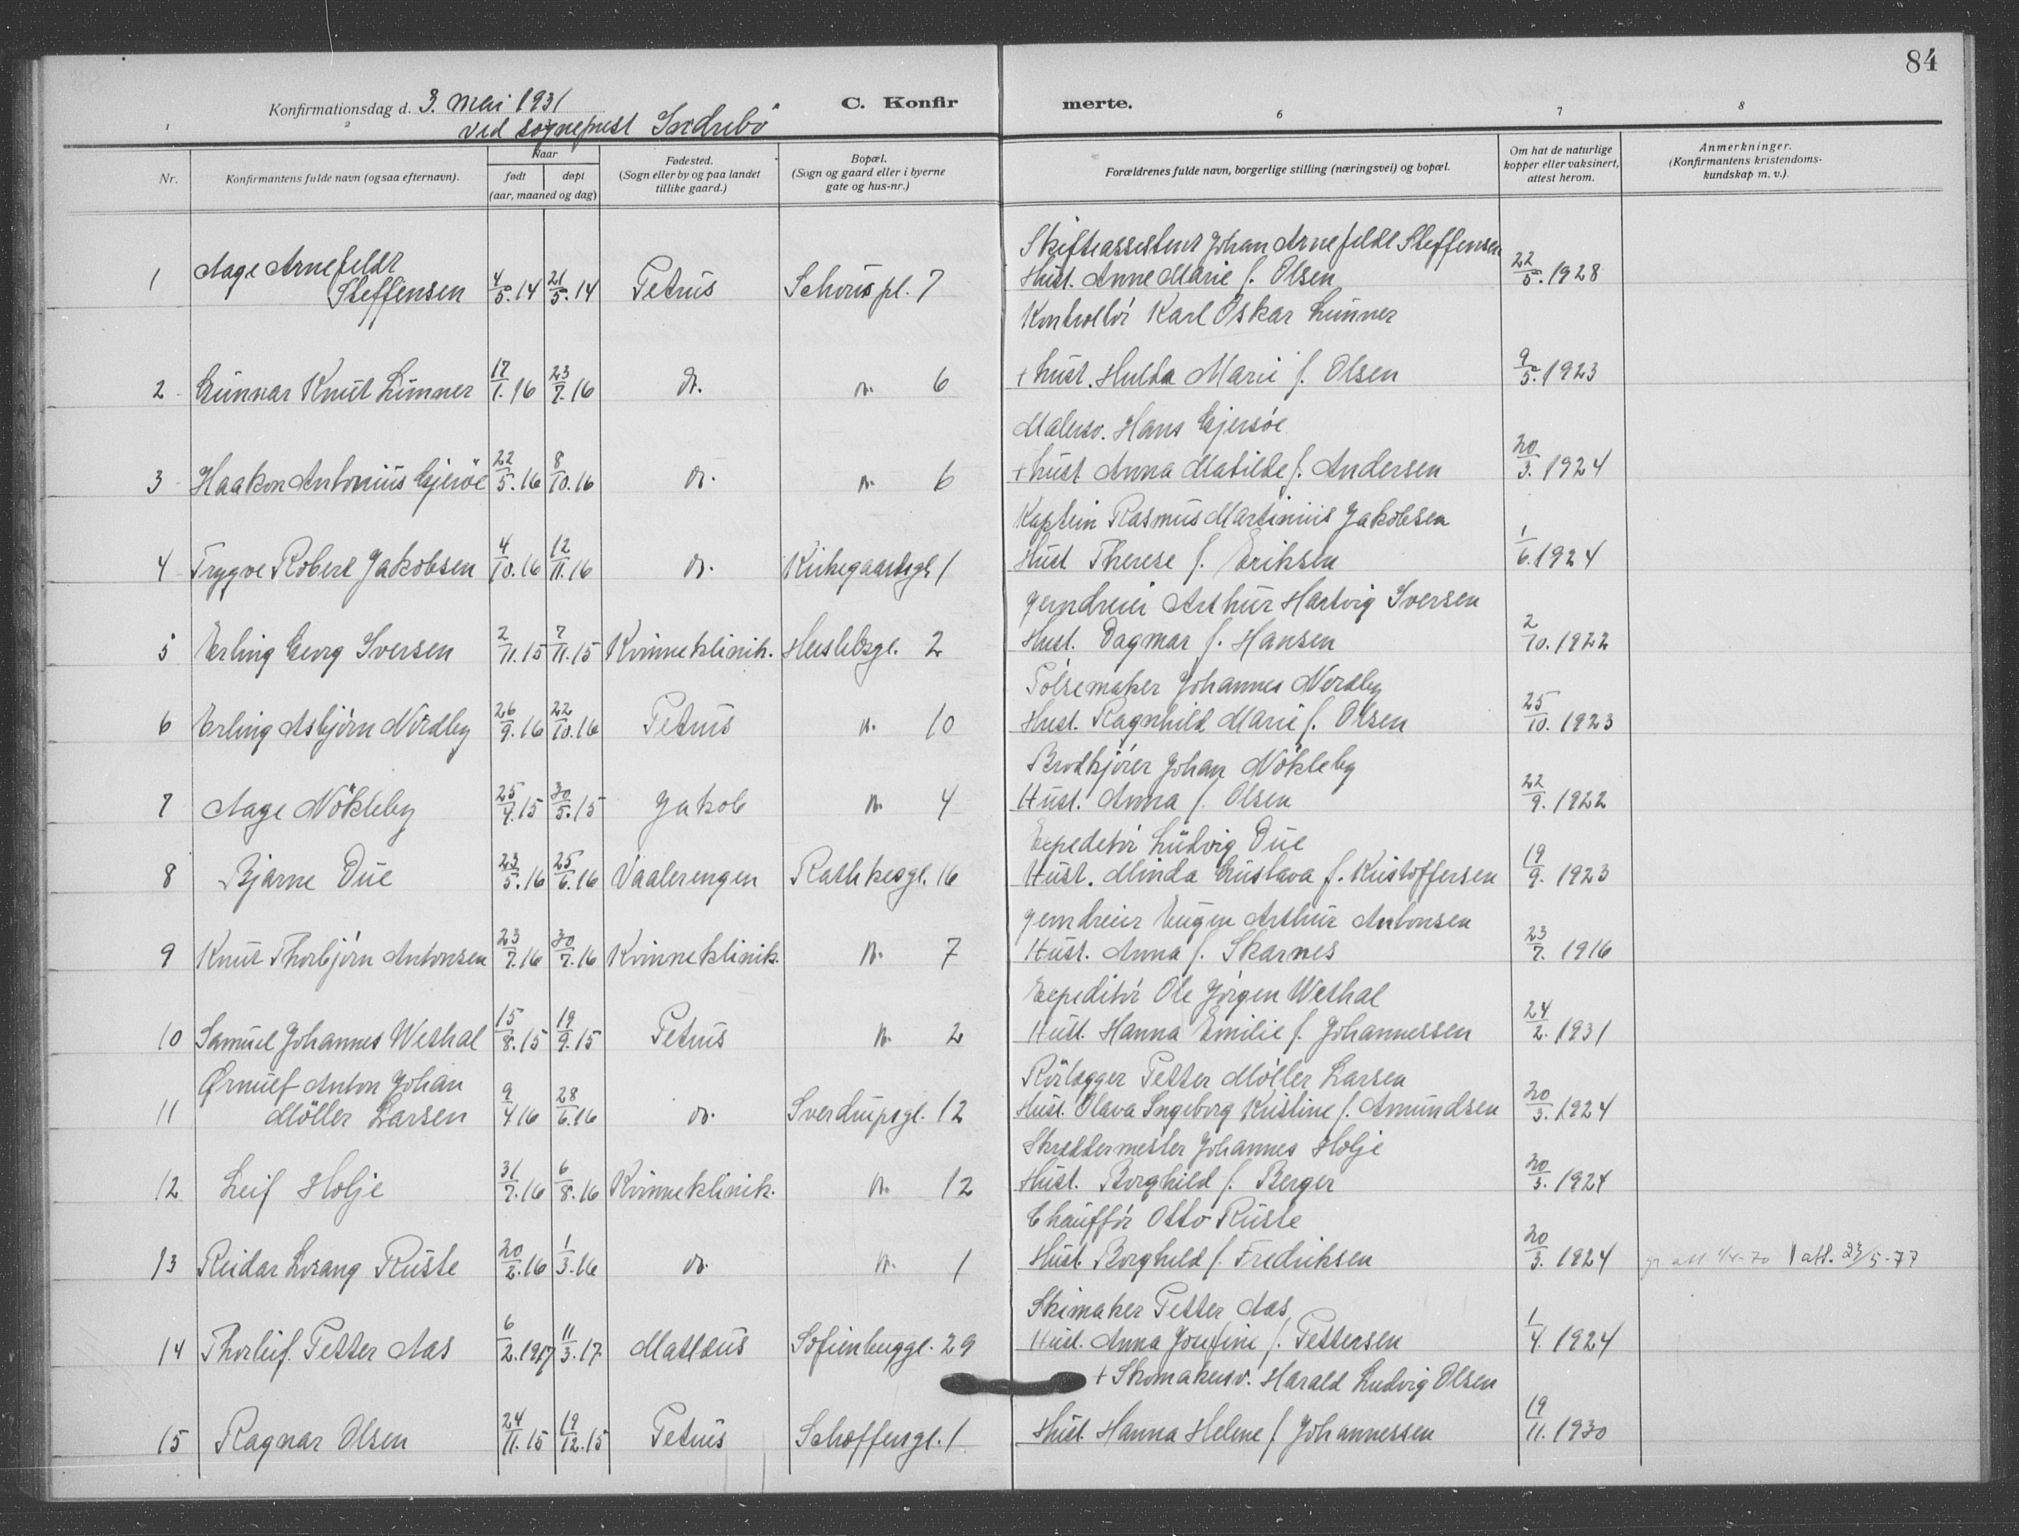 84
Konfirmationsdag d. 3. mai 1931
C. Konfirmerte.
ved sogneprest Indrebö
1 2 3 6 7 8
Nr. Konfirmantens fulde navn (ogsaa efternavn). Naar født døpt (aar, maaned og dag) Fødested. (Sogn eller by og paa landet tillike gaard.) Bopæl. (Sogn og gaard eller i byerne gate og hus-nr.) Forældrenes fulde navn, borgerlige stilling (næringsvei) og bopæl. Om hat de naturlige kopper eller vaksinert, attest herom. Anmerkninger. (Konfirmantens kristendoms- kundskap m. v.).
Skifteassistent Johan Arnefeldt Steffensen
Aage Arnefeldt
1 Steffensen 4/5.14 21/5.14 Petrus Schous pl. 7 Hust. Anne Marie f. Olsen 22/5.1928
Kontrollör Karl Oskar Lunner
2 Gunnar Knut Lunner 17/1.16 23/7.16 do. n. 6 + hust. Hulda Marie f. Olsen 9/5.1923
Malersv. Hans Gjersöe
3 Haakon Antonius Gjersöe 22/5.16 8/10.16 do. n. 6 + hust Anna Matilde f. Andersen 20/3.1924
Kaptein Rasmus Martinius Jakobsen
4 Trygve Robert Jakobsen 4/10.16 12/11.16 do. Kirkegaardsgt. 1 Hust Therese f. Eriksen 1/6.1924
Jerndreier Arthur Hartvig Iversen
5 Erling Georg Iversen 2/11.15 7/11.15 Kvinneklinik. Heslebsgt. 2 Hust. Dagmar f. Hansen 2/10.1922
Pölsemaker Johannes Nordby
6 Erling Asbjörn Nordby 26/9.16 22/10.16 Petrus n. 10 Hust. Ragnhild Marie f. Olsen 25/10.1923
Brödkjörer Johan Nökleby
7 Aage Nökleby 25/4.15 30/5.15 Jakob n. 4 Hust. Anna f. Olsen 22/9.1922
Expeditör Ludvig Due
8 Bjarne Due 23/5.16 25/6.16 Vaalerengen Rathkesgt. 16 Hust. Minda Gustava f. Kristoffersen 19/9.1923
Jerndreier Eugen Arthur Antonsen
9 Knut Thorbjörn Antonsen 23/7.16 30/7.16 Kvinneklinik. n. 7 Hust. Anna f. Skarnes 23/7.1916
Expeditör Ole Jörgen Wethal
10 Samuel Johannes Wethal 15/8.15 19/9.15 Petrus n. 2 Hust. Hanna Emilie f. Johannessen 24/2.1931
Ørnulf Anton Johan Rörlegger Petter Möller Larsen
11 Möller Larsen 9/4 16 28/6.16 do. Sverdrupsgt. 12 Hust. Olava Ingeborg Kristine f. Amundsen 20/3.1924
Skreddermester Johannes Holje
12 Leif Holje 31/7.16 6/8.16 Kvinneklinik. n. 12 Hust. Borghild f. Berger 20/3.1924
Chaufför Otto Ruste
13 Reidar Lorang Ruste 20/2.16 1/3.16 do. n. 1 Hust. Borghild f. Fredriksen 20/3.1924 att. 23/5-77
Skimaker Petter Aas
14 Thorleif Petter Aas 6/2.1917 11/3.17 Matteus Sofienberggt. 29 Hust. Anna Josefine f. Pettersen 1/4.1924
+ Skomakersv. Harald Ludvig Olsen
15 Ragnar Olsen 24/11.15 19/12.15 Petrus 1 Hust. Hanna Helene f. Johannessen 19/11.1930